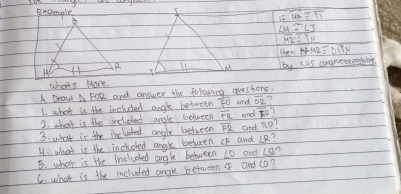 Example
If
∠M ≅ ∠T
MR ≅ TN
then
by SAS congruence postulate
H
R
M
What's More:
A. Draw △ FOR and answer the following questions.
1. what is the included angle between FO and OR?
2. what is the included angle between FR and FO?
3. what is the included angle between FR and RO?
4. what is the included angle between CF and LR?
5. what is the included angle between LO and LR?
6. what is the included angle between and LO?